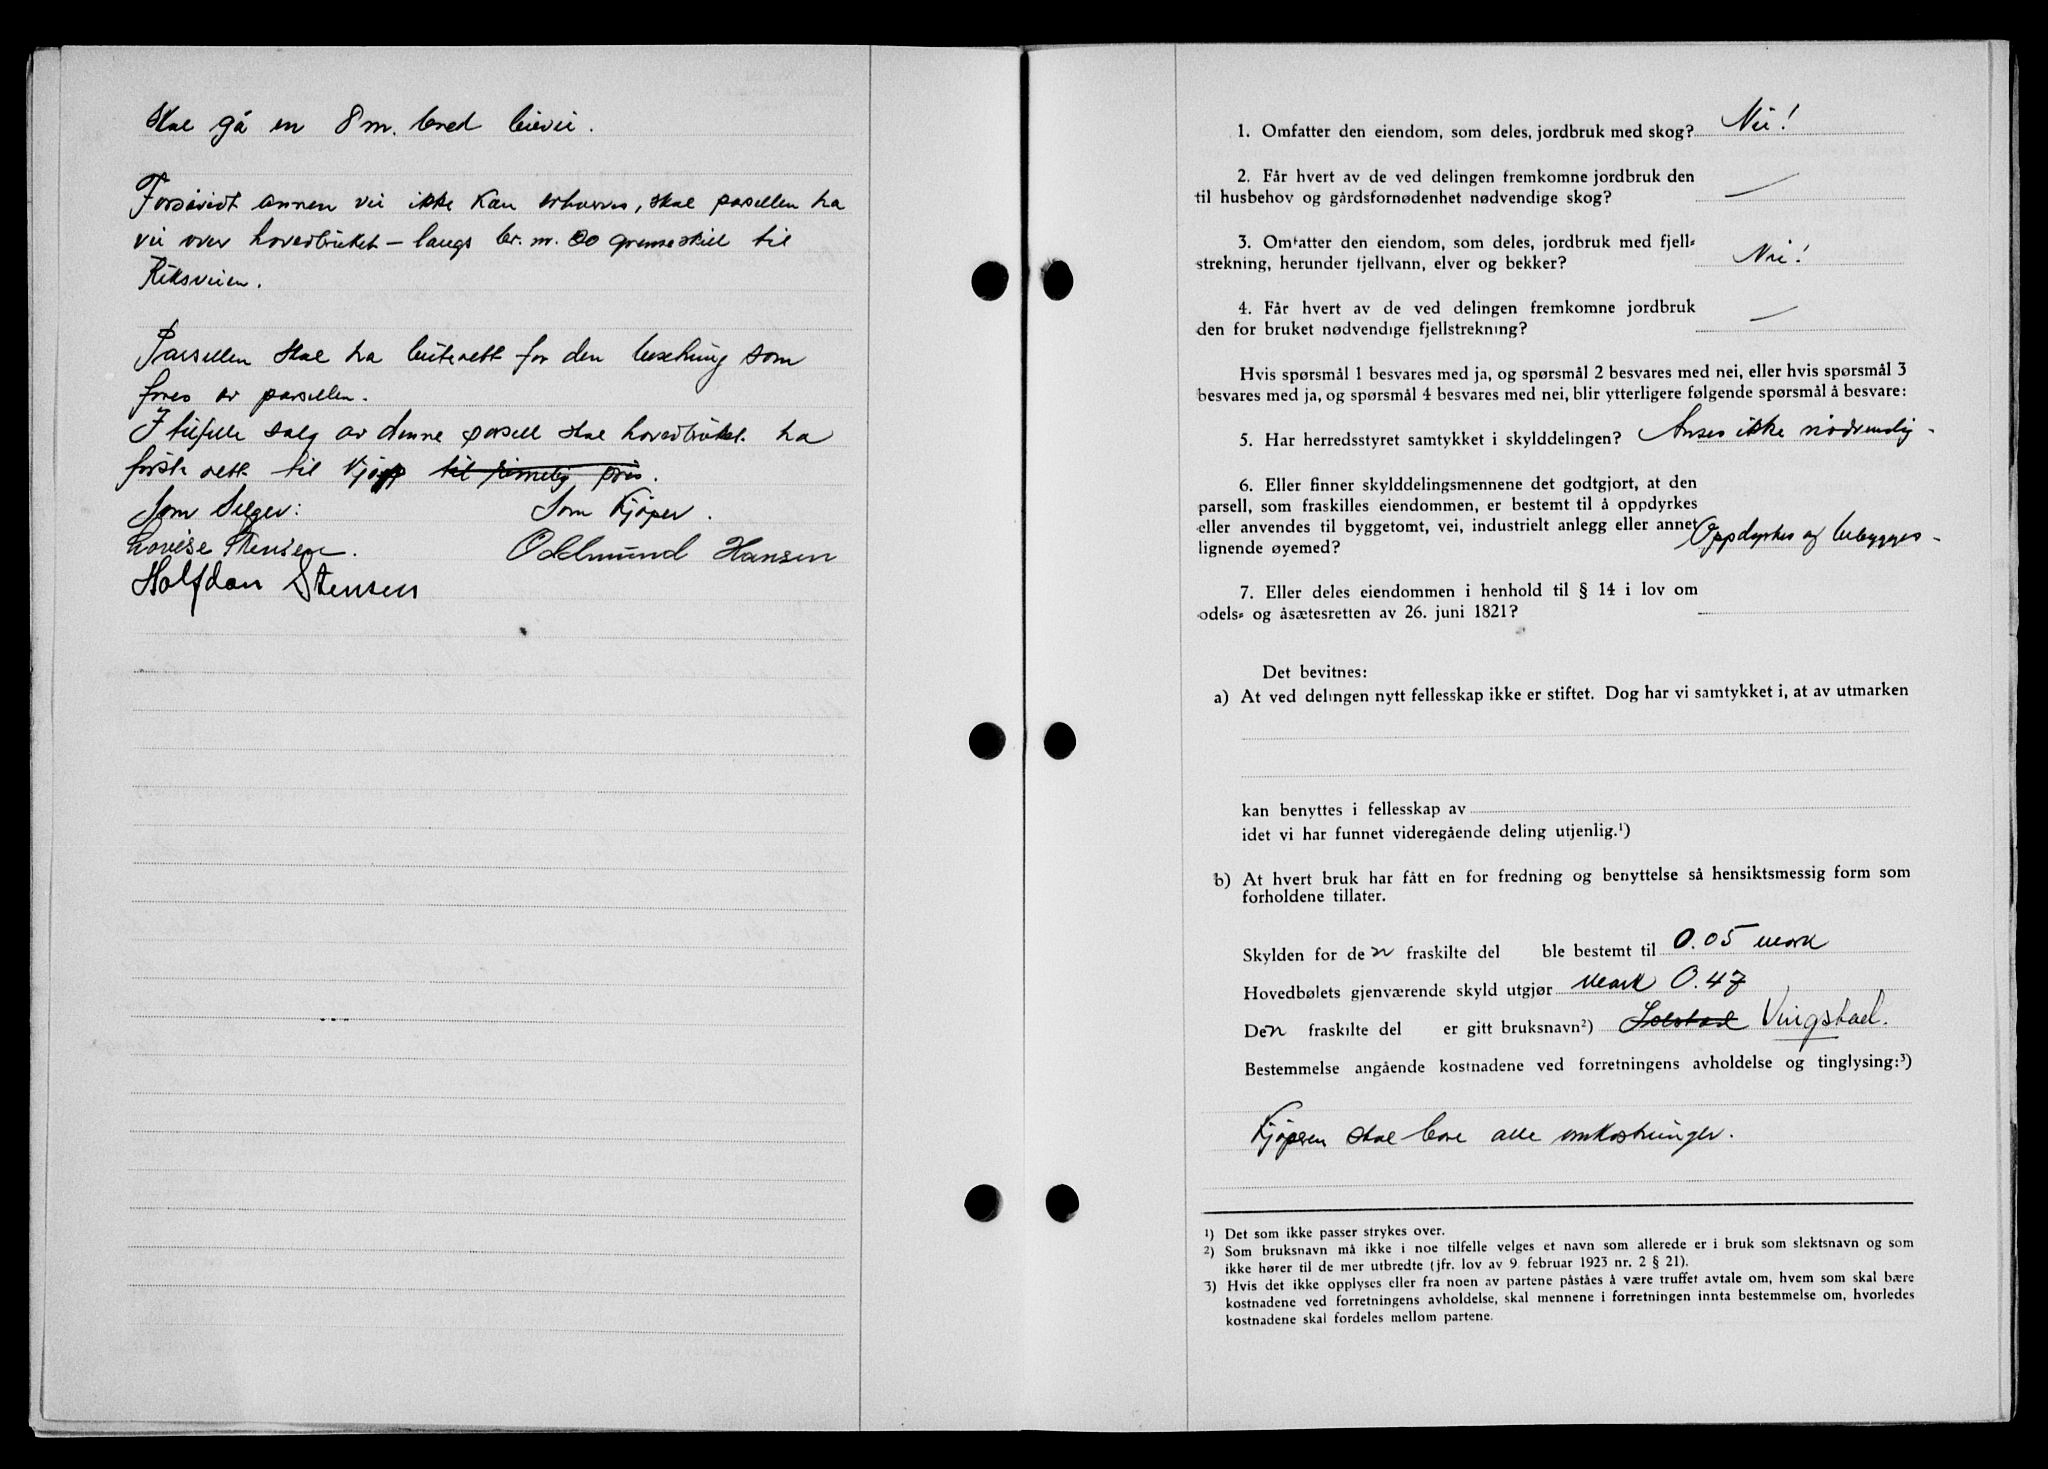 Skal gå en 8 m. bred bivei.
Forsåvidt annen vei ikke kan erhverves, skal parsellen ha
vei over hovedbruket – langs br. nr. 20 grenseskill til
Riksveien.
Parsellen skal ha beiterett for den besetning som
fores av parsellen.
I tilfelle salg av denne parsell skal hovedbruket ha
første rett til kjøp til rimelig pris.
Som Selger: Som Kjøper.
Lovise Stensen. Oddmund Hansen
Halfdan Stensen
1. Omfatter den eiendom, som deles, jordbruk med skog? Nei!
2. Får hvert av de ved delingen fremkomne jordbruk den
til husbehov og gårdsfornødenhet nødvendige skog? —
3. Omfatter den eiendom, som deles, jordbruk med fjell-
strekning, herunder fjellvann, elver og bekker? Nei!
4. Får hvert av de ved delingen fremkomne jordbruk
den for bruket nødvendige fjellstrekning? —
Hvis spørsmål 1 besvares med ja, og spørsmål 2 besvares med nei, eller hvis spørsmål 3
besvares med ja, og spørsmål 4 besvares med nei, blir ytterligere følgende spørsmål å besvare:
5. Har herredsstyret samtykket i skylddelingen? Anses ikke nødvendig -
6. Eller finner skylddelingsmennene det godtgjort, at den
parsell, som fraskilles eiendommen, er bestemt til å oppdyrkes
eller anvendes til byggetomt, vei, industrielt anlegg eller annet
lignende øyemed? Oppdyrkes og bebygges -
7. Eller deles eiendommen i henhold til § 14 i lov om
odels- og åsætesretten av 26. juni 1821?
Det bevitnes:
a) At ved delingen nytt fellesskap ikke er stiftet. Dog har vi samtykket i, at av utmarken
kan benyttes i fellesskap av
idet vi har funnet videregående deling utjenlig.¹)
b) At hvert bruk har fått en for fredning og benyttelse så hensiktsmessig form som
forholdene tillater.
Skylden for den fraskilte del ble bestemt til 0.05 mark
Hovedbølets gjenværende skyld utgjør Mark 0.47
Den fraskilte del er gitt bruksnavn²) Solstad Vingstad.
Bestemmelse angående kostnadene ved forretningens avholdelse og tinglysing:³)
Kjøperen skal bære alle omkostninger.
¹) Det som ikke passer strykes over.
²) Som bruksnavn må ikke i noe tilfelle velges et navn som allerede er i bruk som slektsnavn og som
ikke hører til de mer utbredte (jfr. lov av 9. februar 1923 nr. 2 § 21).
3) Hvis det ikke opplyses eller fra noen av partene påståes å være truffet avtale om, hvem som skal bære
kostnadene ved forretningens avholdelse, skal mennene i forretningen innta bestemmelse om, hvorledes
kostnadene skal fordeles mellom partene.